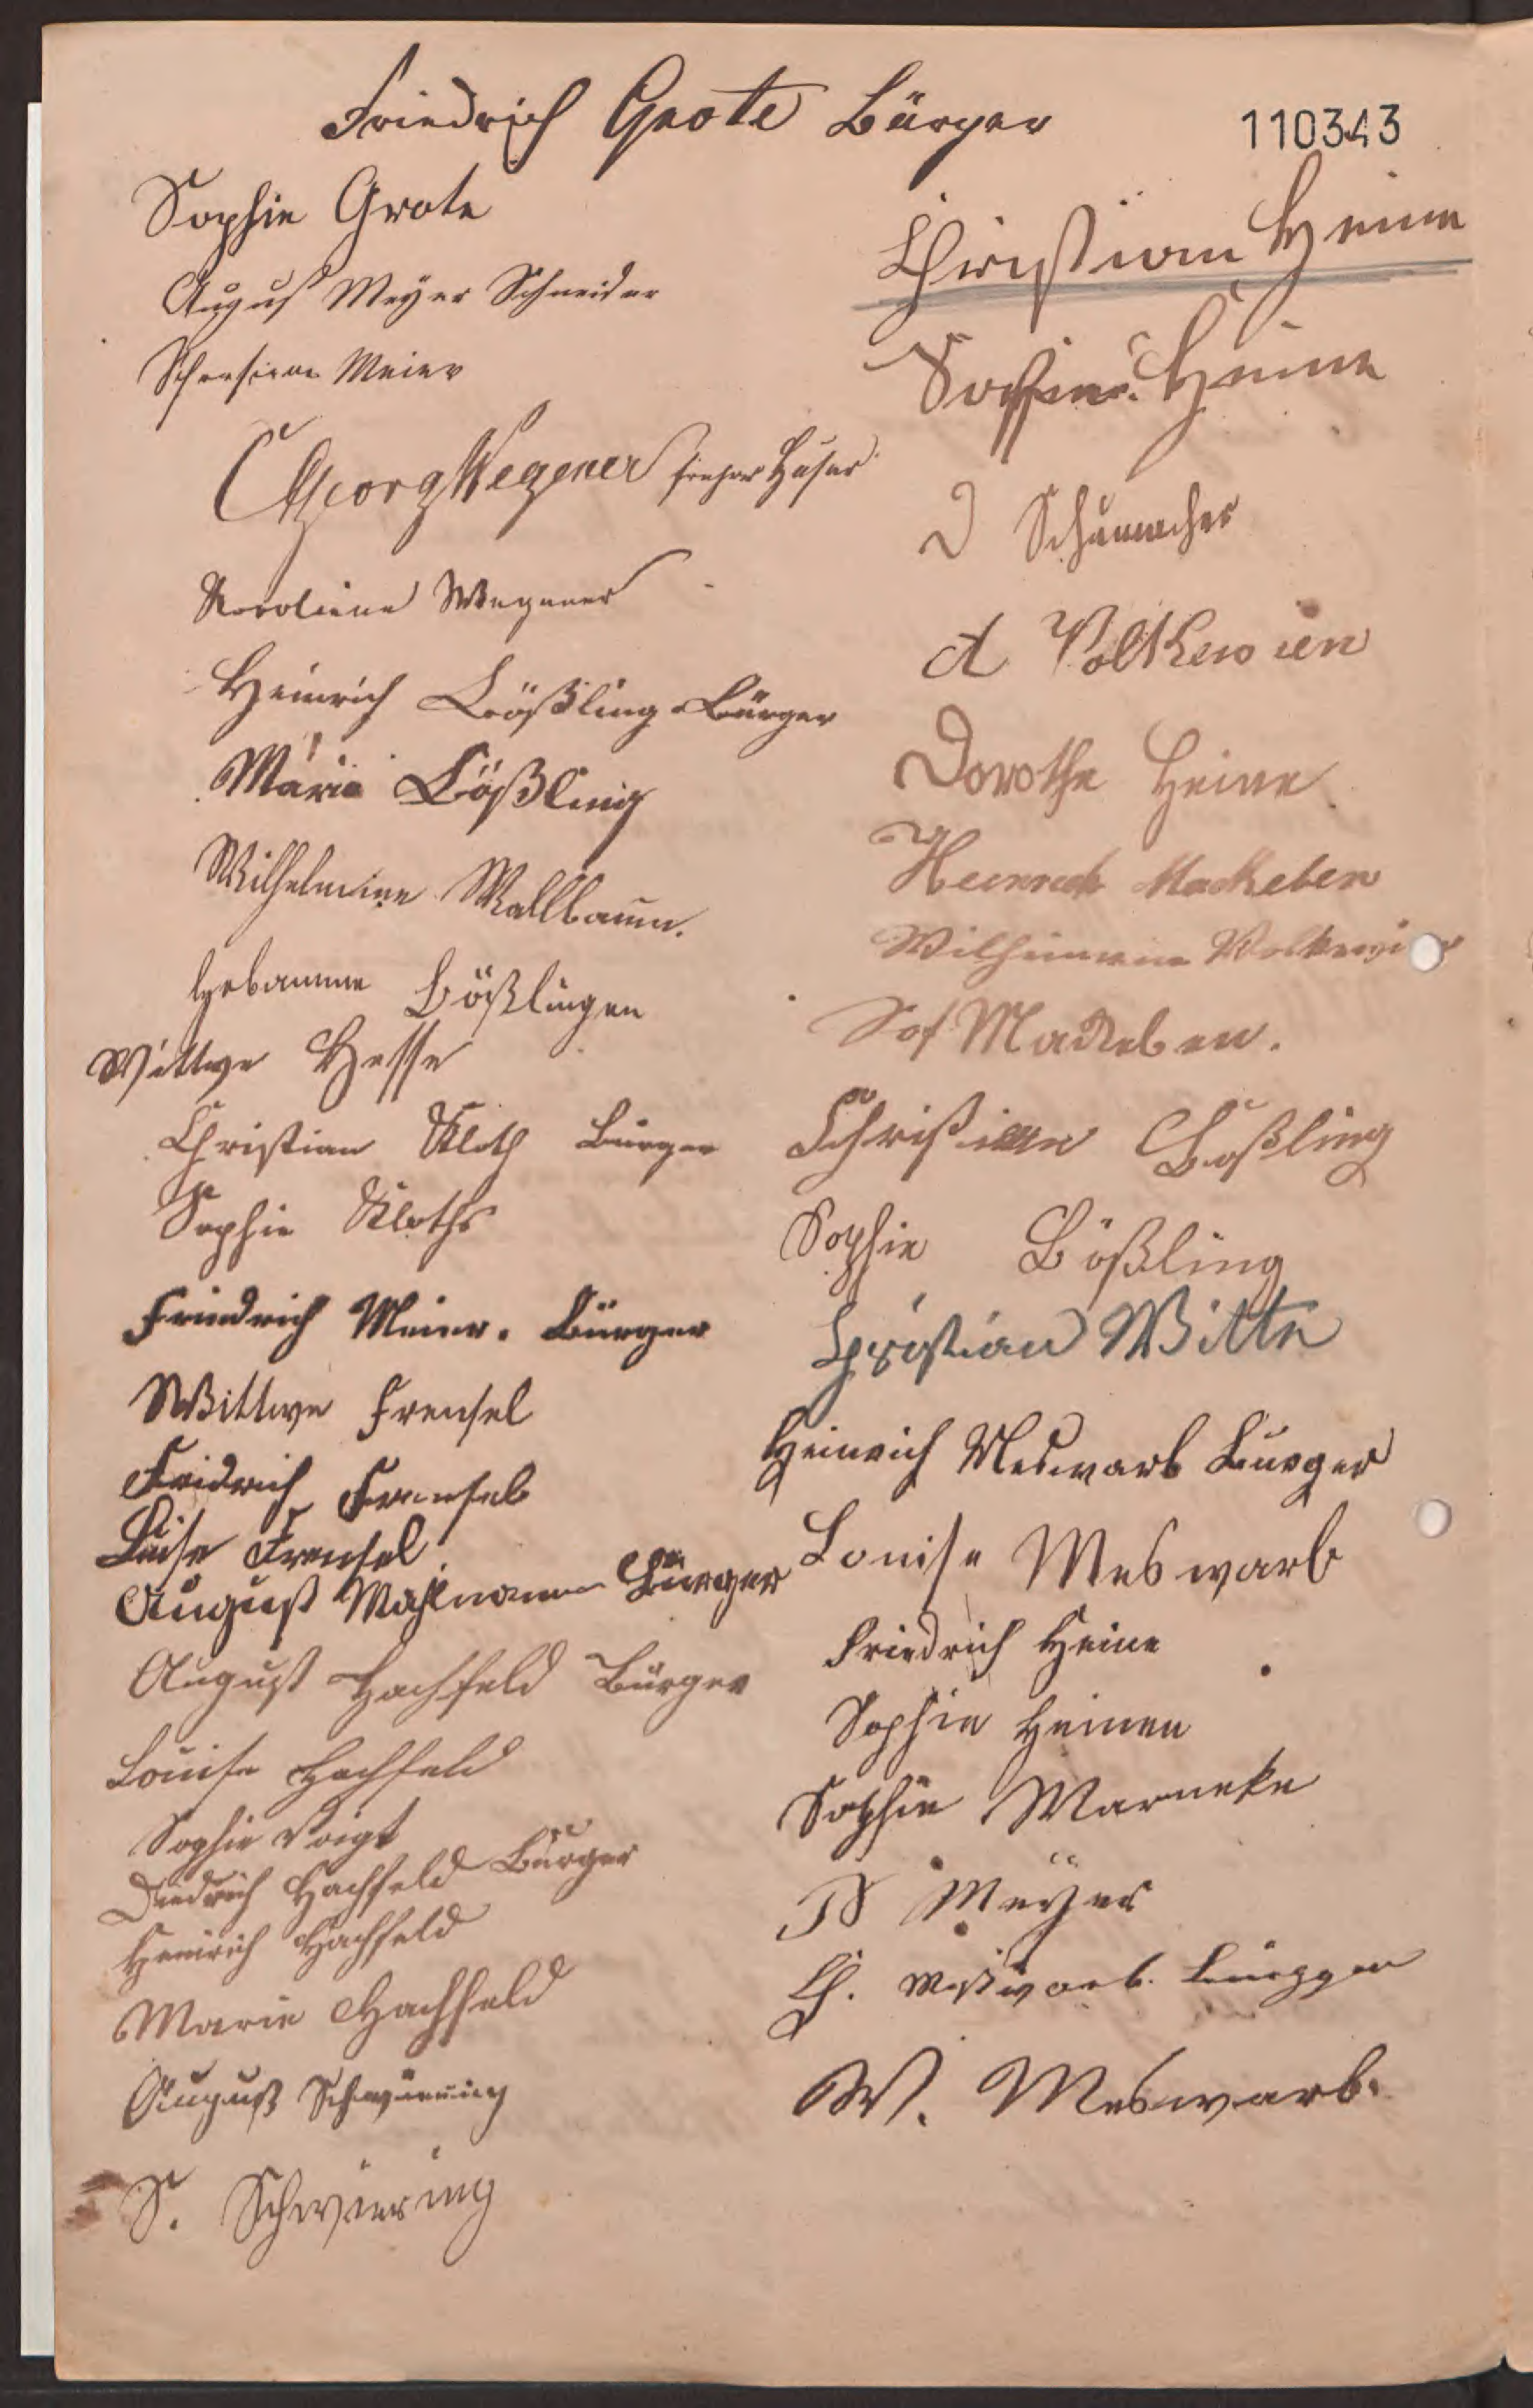 Friedrich Grote Bürger
110343
Sophie Grote
August Meyer Schneider
Meier
Georg Wegener früher Husar
Karoline Wegener
Heinrich Bößling Bürger
Marie Bößling
Wilhelmine Wallbaum.
Hebamme Bößlingen
Wittwe Hesse
Christian Kloth Bürger
Sophie Kloths
Friedrich Meier. Bürger
Wittwe Frensel
Fridrich Frensel
Luise Frensel
August Mahlmann Bürger
August Hachfeld Bürger
Louise Hachfeld
Sophie Voigt
Diedrich Hachfeld Bürger
Heinrich Hachfeld
Marie Hachfeld
August Schwiering
S. Schwiering
Christian Heine
Sophie Heine
D Schumacher
A Volkewien
Dorothe Heine
Heinrich Mackeben
Sof Mackeben.
Christian Bößling
Sophie Bößling
Christian Witte
Heinrich Meswarb Bürger
Louise Meswarb
Friedrich Heine
Sophie Heinen
Sophie Warneke
Meyer
Ch.
W. Meswarb.